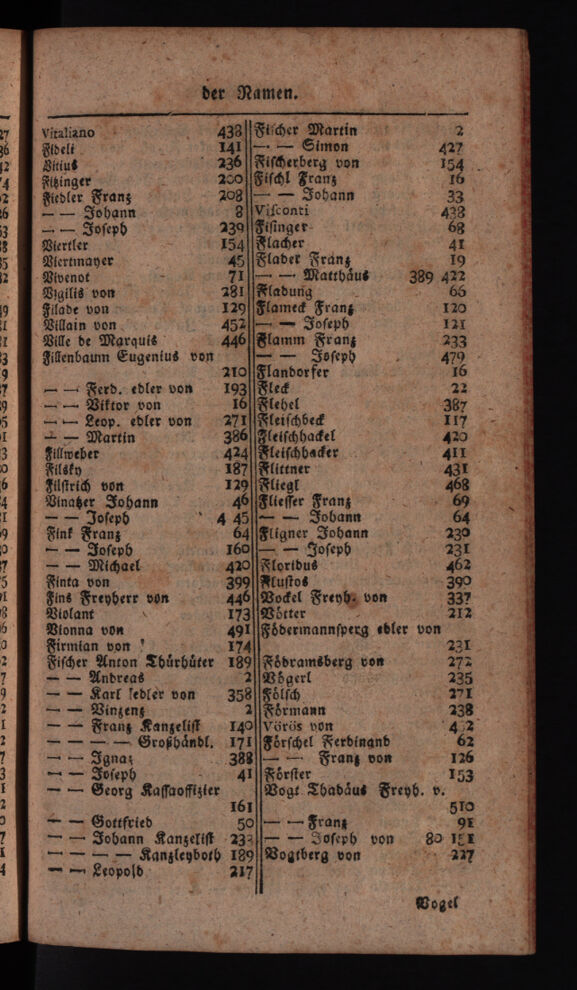 der Namen.
Vitaliano 438
Fideli 141
Vitius 236
Fitzinger 200
Fiedler Franz 208
— — Johann 8
— — Joseph 239
Viertler 154
Viertmayer 45
Vivenot 71
Vigilis von 281
Filade von 129
Villain von 452
Ville de Marquis 446
Fillenbaum Eugenius von
210
— — Ferd. edler von 193
— — Viktor von 16
— — Leop. edler von 271
— — Martin 386
Fillweber 424
Filsky 187
Filstrich von 129
Vinatzer Johann 46
— — Joseph 4 45
Fink Franz 64
— — Joseph 160
— — Michael 420
Finta von 399
Fins Freyherr von 446
Violant 173
Vionna von 491
Firmian von 174
Fischer Anton Thürhüter 189
— — Andreas 2
— — Karl edler von 358
— — Vinzenz 2
— — Franz Kanzelist 140
— — — — Großhändl. 171
— — Ignaz 388
— — Joseph 41
— — Georg Kassaoffizier
161
— — Gottfried 50
— — Johann Kanzelist 233
— — — — Kanzleyboth 189
— — Leopold 217
Fischer Martin 2
— — Simon 427
Fischerberg von 154
Fischl Franz 16
— — Johann 33
Visconti 438
Fisinger 68
Flacher 41
Flader Franz 19
— — Matthäus 389 422
Fladung 66
Flameck Franz 120
— — Joseph 121
Flamm Franz 233
— — Joseph 479
Flandorfer 16
Fleck 22
Flehel 387
Fleischbeck 117
Fleischhackel 420
Fleischhacker 411
Flittner 431
Fliegl 468
Fliesser Franz 69
— — Johann 64
Fligner Johann 230
— — Joseph 231
Floridus 462
Flustos 390
Vockel Freyh. von 337
Vötter 212
Födermannsperg edler von
231
Födramsberg von 272
Vögerl 235
Fölsch 271
Förmann 238
Vörös von
Förschel Ferdinand 62
— — Franz von 126
Förster 153
Vogt Thadäus Freyh. v.
510
— — Franz 91
— — Joseph von 80 151
Vogtberg von 227
Vogel